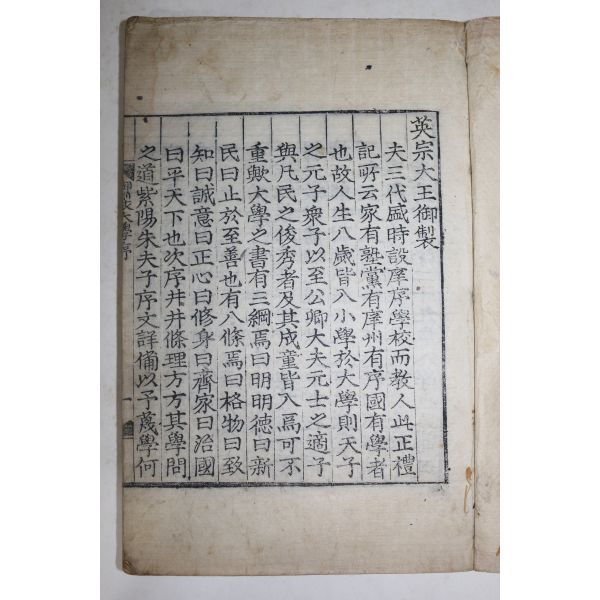 英宗大王御製
夫三代盛時設庠序學校而敎人此正禮
記所云家有塾黨有庠州有序國有學者
也故人生八歲皆入小學於大學則天子
之元子衆子以至公卿大夫元士之適子
與凡民之俊秀者及其成童皆入焉可不
重歟大學之書有三綱焉曰明明德曰新
民曰止於至善也有八條焉曰格物曰致
知曰誠意曰正心曰修身曰齊家曰治國
曰平天下也次序井井條理方方其學問
之道紫陽朱夫子序文詳備以予蔑學何
御製大學序
一